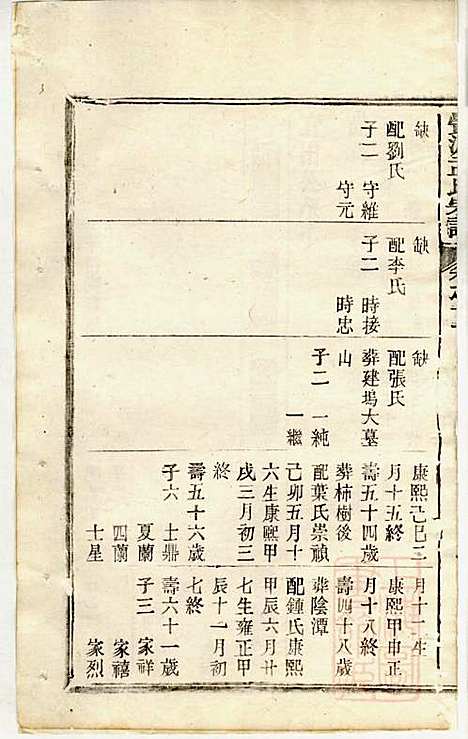 缺
配劉氏
子二　守維
守元
缺
配李氏
子二　時接
時忠
缺
配張氏
葬建塢大墓
山
子二　一純
一繼
康熙己巳三
月十五終
壽五十四歲
葬柿樹後
配葉氏崇禎
己卯五月十
六生康熙甲
戌三月初三
終
壽五十六歲
子六　士鼎
夏蘭
四蘭
士星
月十一生
康熙甲申正
月十八終
壽四十八歲
葬陰潭
配鍾氏康熙
甲辰六月廿
七生雍正甲
辰十一月初
七終
壽六十一歲
子三　家祥
家禧
家烈